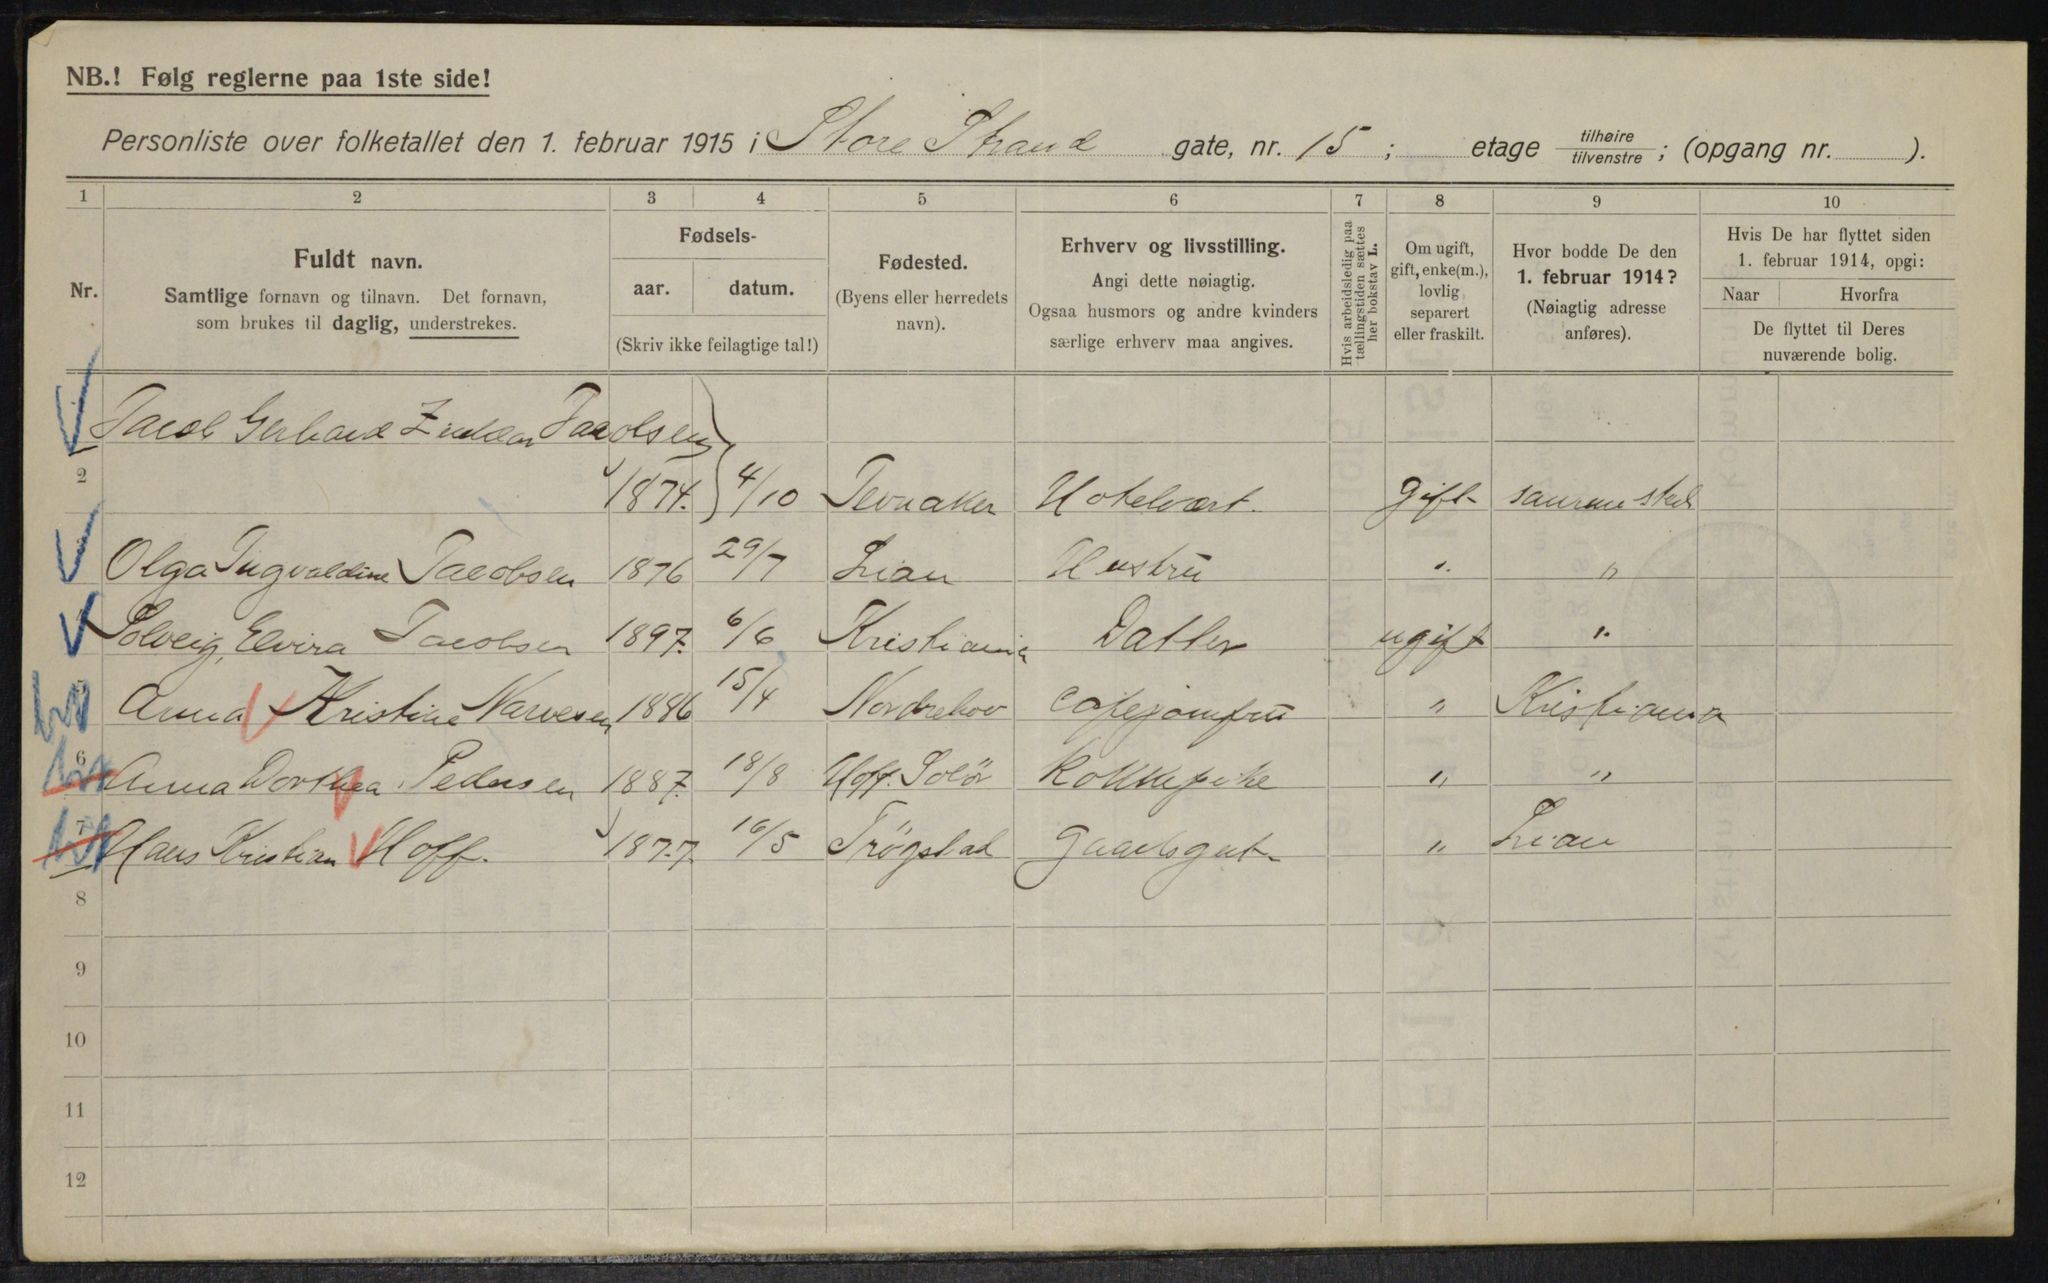 NB.! Følg reglerne paa 1ste side!
Personliste over folketallet den 1. februar 1915 i Store Strand gate, nr. 15 ; etage tilhøire tilvenstre ; (opgang nr. ).
1 2 3 4 5 6 7 8 9 10
Nr.
Fuldt navn.
Samtlige fornavn og tilnavn. Det fornavn,
som brukes til daglig, understrekes.
Fødsels-
aar. datum.
(Skriv ikke feilagtige tal!)
Fødested.
(Byens eller herredets
navn).
Erhverv og livsstilling.
Angi dette nøiagtig.
Ogsaa husmors og andre kvinders
særlige erhverv maa angives.
Hvis arbeidsledig paa
tællingstiden sættes
her bokstav L.
Om ugift,
gift, enke(m.),
lovlig
separert
eller fraskilt.
Hvor bodde De den
1. februar 1914?
(Nøiagtig adresse
anføres).
Hvis De har flyttet siden
1. februar 1914, opgi:
Naar Hvorfra
De flyttet til Deres
nuværende bolig.
Jacob Gerhard Jacobsen
2 1874. 4/10 Jevnaker Hotelvært. gift samme sted
Olga Ingvaldine Jacobsen 1876 29/7 Lian Hustru " "
Solveig, Elvira Jacobsen 1897. 6/6 Kristiania Datter ugift "
Anna Kristine Narvesen 1886 15/4 Norderhov cafejomfru " Kristiania
6 Anna Dorthea Pedersen 1887. 18/8 Hoff. Solör Kokkepike " "
7 Hans Kristian Hoff. 1877 16/5 Trögstad Gaardsgut " Lian
8
9
10
11
12